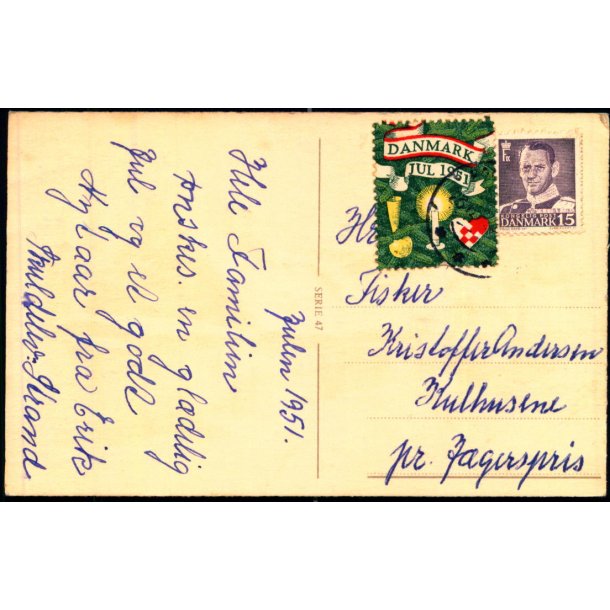 Julen 1951.
Hele Familien
ønskes en glædelig
Jul og et godt
Nytaar fra Erik
Strand
SERIE 47
DANMARK
JUL 1951
KONGELIG POST
DANMARK 15
Hr
Fisker
Kristoffer Andersen
Kulhusene
pr. Jægerspris